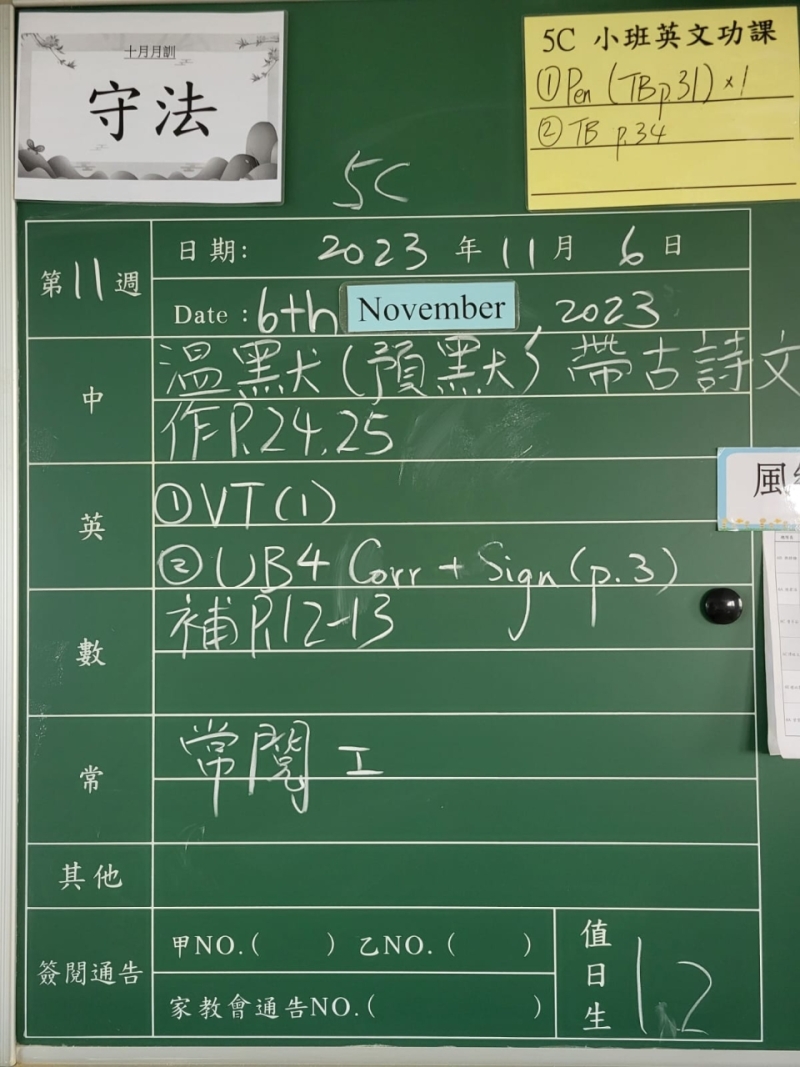 十月月訓
守法
5C 小班英文功課
① Pen (TB p.31) ×1
② TB p.34
5C
第11週
日期: 2023 年 11 月 6 日
Date : 6th November, 2023
中
溫默(預默) 帶古詩文
作P.24,25
英
① VT(1)
② UB4 Corr + Sign (p.3)
數
補P.12-13
常
常閱 工
其他
簽閱通告
甲NO.( ) 乙NO.( )
家教會通告NO.( )
值日生
1,2